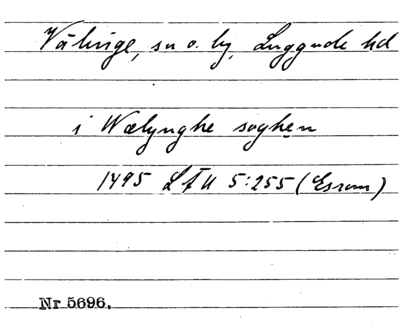 Välinge, sn o. by, Luggude hd
i Wælynghe soghen
1495 LÆU 5:255 (Esrom)
Nr 5696.